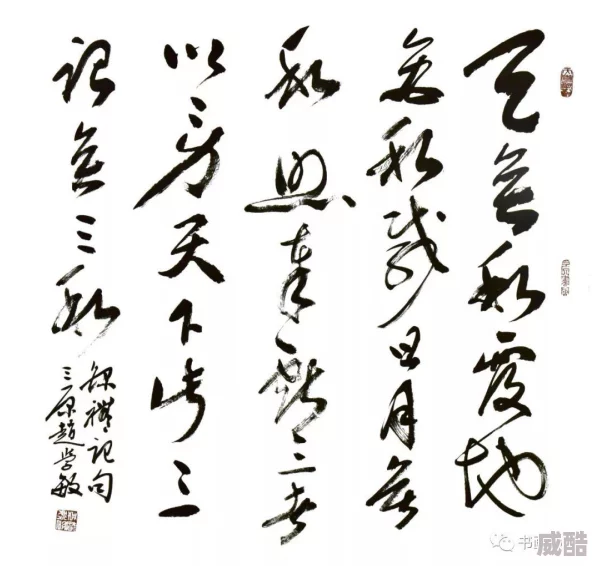 天無私覆地
無私載日月無
私照奉斯三者
以勞天下此之
謂無三私
錄禮記句
三原趙學敏
书画
威酷